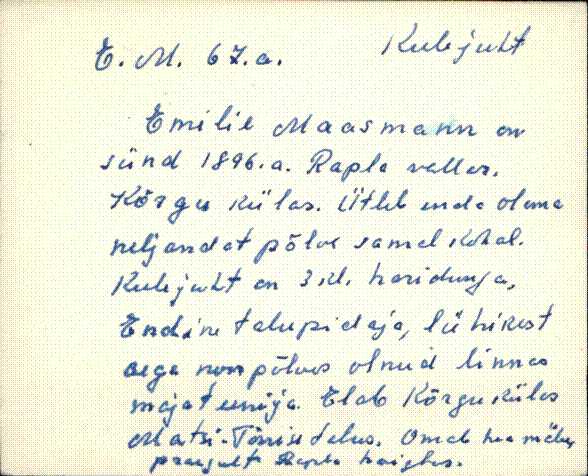 E. M. 67. a. Keelejuht
Emilie Maasmann on
sünd 1896.a. Rapla vallas.
Kõrgu külas. Ütleb enda olema
neljandat põlve samal kohal.
Keelejuht on 3 kl. haridusega,
Endine talupidaja, lühikest
aega noorpõlves olnud linnas
majateenija. Elab Kõrgu külas
Matsi-Tõnise talus. Omab hea mälu
praegult Rapla haiglas.